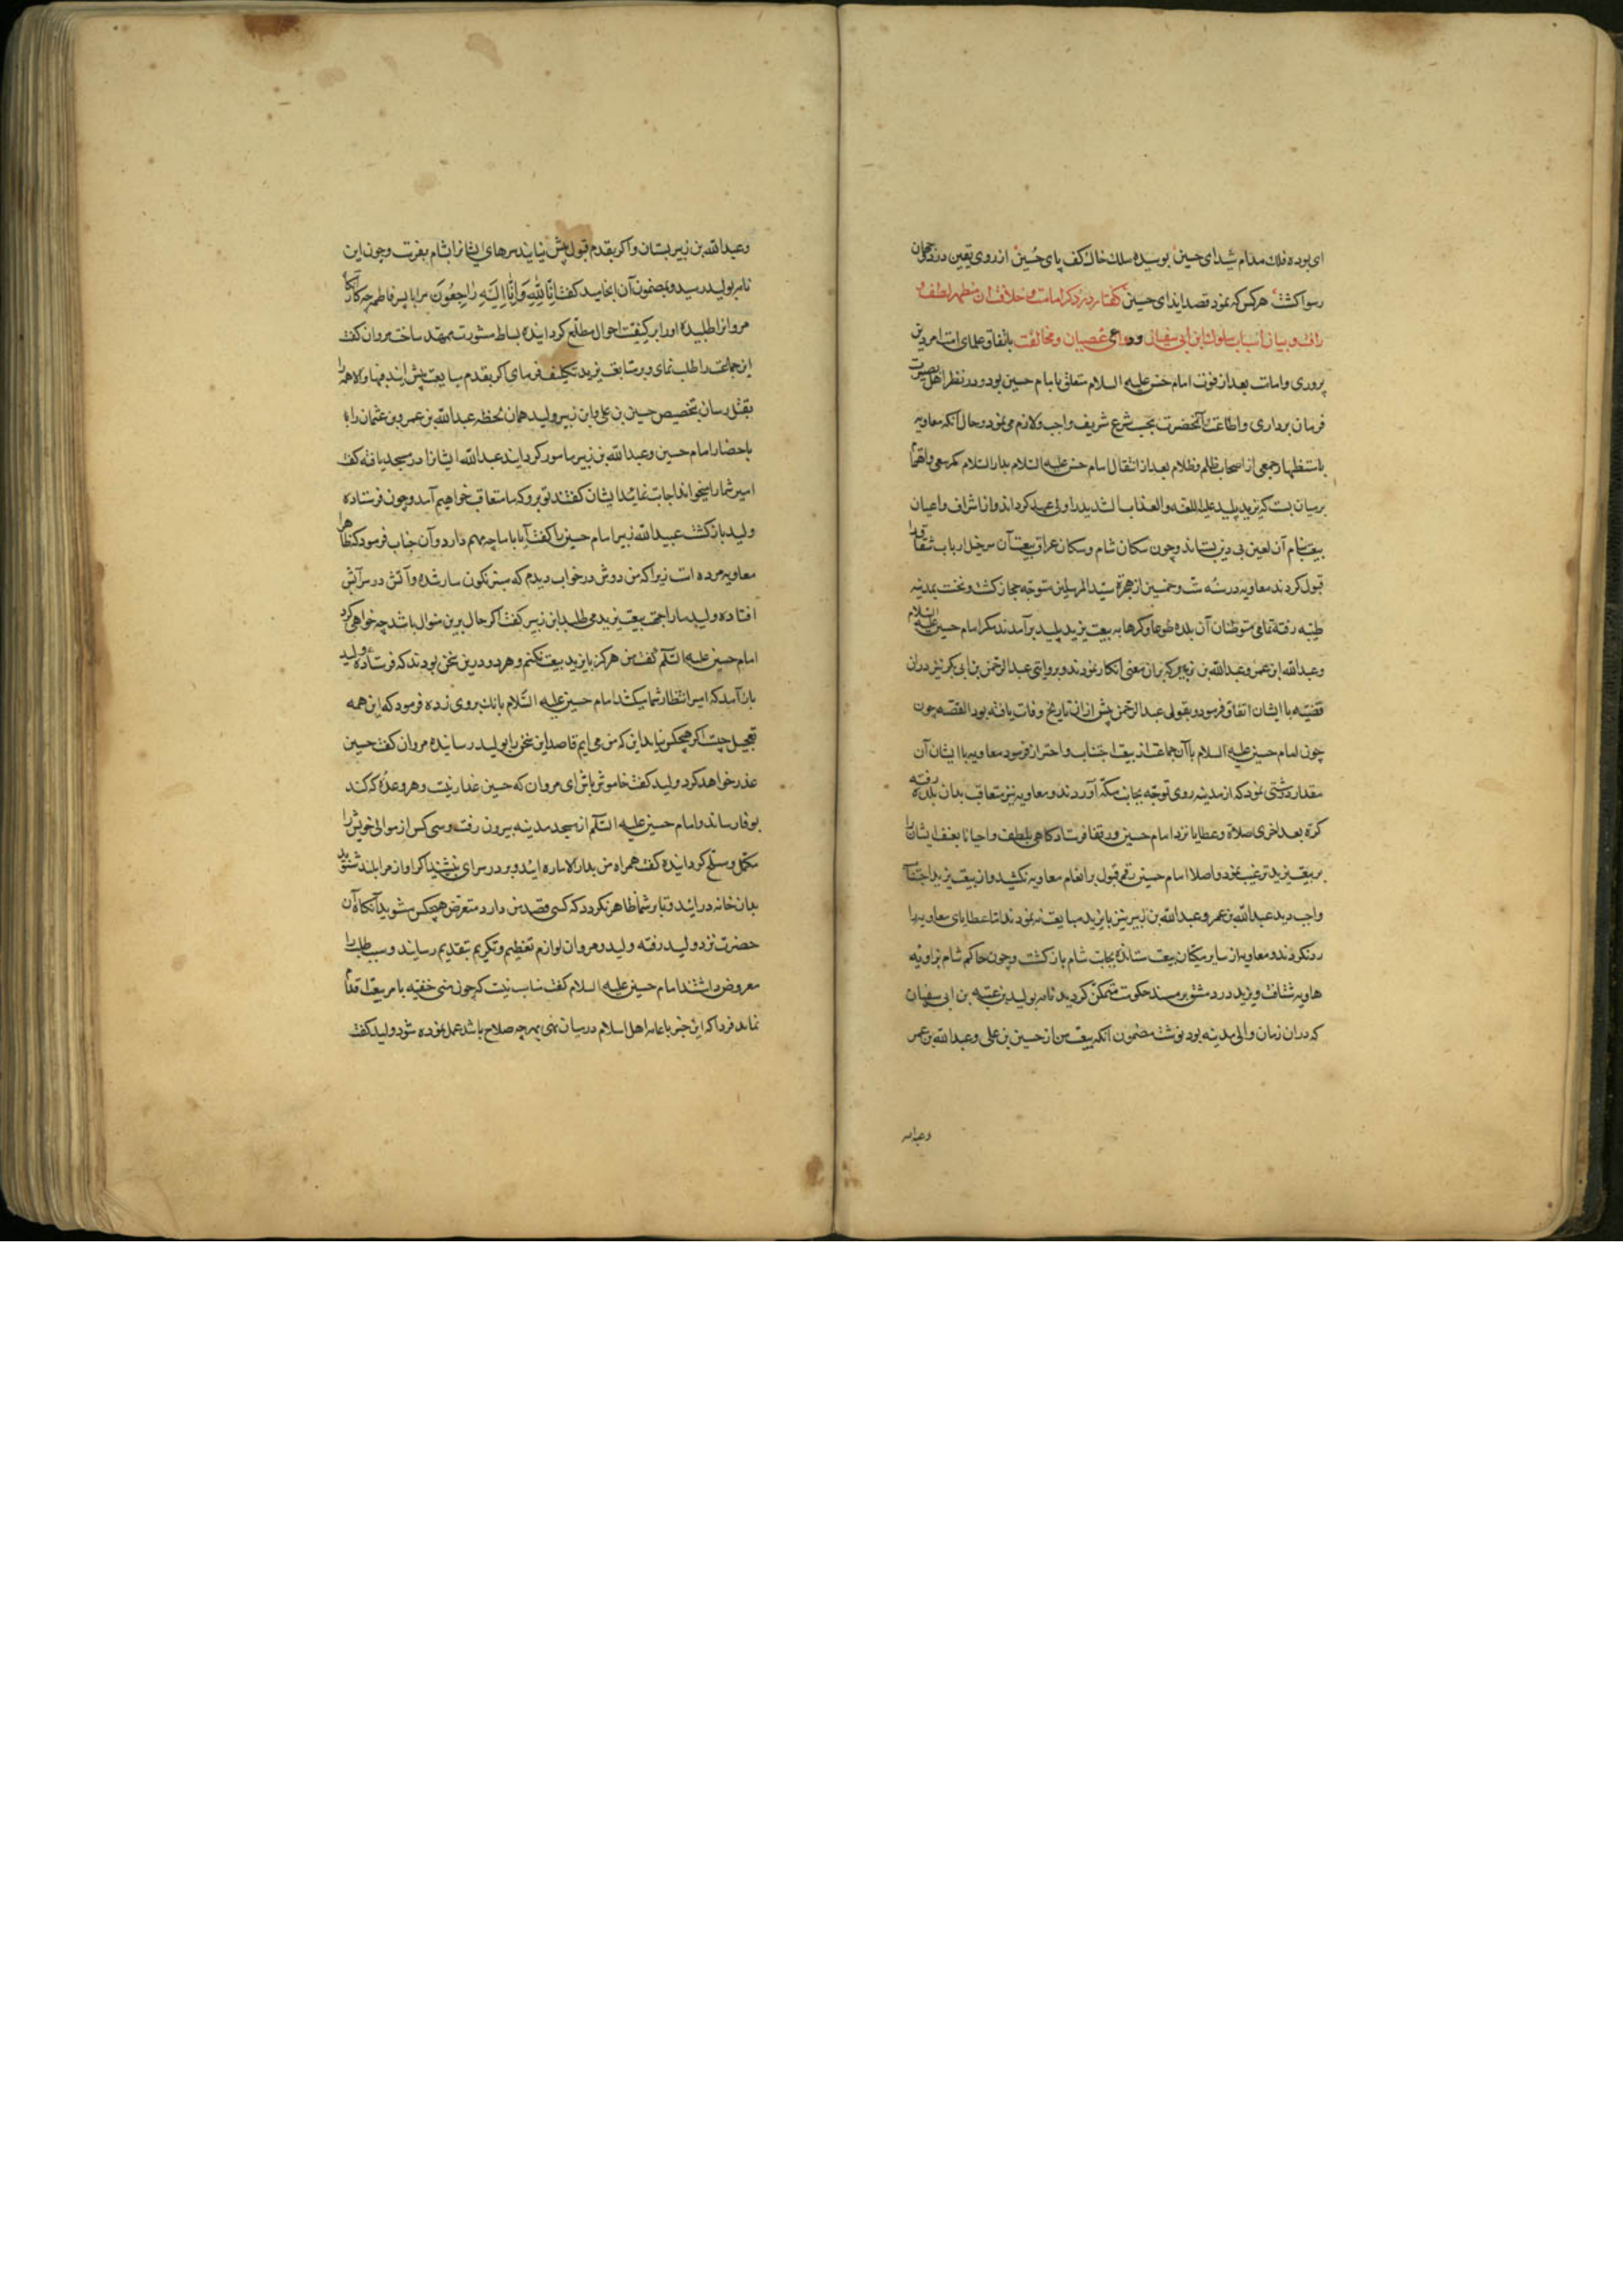 ای بوده فلک مدام شیدای حسین بوسیده ملک خاک کف پای حسین از روی یقین در دو جهان
رسوا کشت هر کس که نمود قصد ایذای حسین کفتار در ذکر امامت و خلافت آن مظهر لطف و
رافت و بیان اسباب سلوک ابن ابی سفیان عصیان و مخالفت باتفاق علمای امت امر دین
پروری و امامت بعد از فوت امام حسن علیه السلام متعلق بامام حسین بود و در نظر اهل بصیرت
فرمان برداری و اطاعت آنحضرت بحسب شرع شریف واجب و لازم می نمود و حال آنکه معاویه
باستظهار جمعی از اصحاب ظلم و ظلام بعد از انتقال امام حسن علیه السلام بدار السلام کمر سعی و اهتمام
بر میان بست که یزید پلید علیه اللعنه والعذاب الشدید را ولی عهد کرداند و از اشراف و اعیان
بیعت بنام آن لعین بی دین بستاند و چون سکان شام و سکان عراق بیعت آن سر خیل ارباب شقاق را
قبول کردند معاویه در سنه ست و خمسین از هجرة سید المرسلین متوجه حجاز کشت و نخست بمدینه
طیبه رفته تمامی متوطنان آن بلده طوعا و کرها به بیعت یزید پلید بر آمدند مکر امام حسین علیه السلام
و عبدالله ابن عمر و عبدالله بن زبیر که بران معنی انکار نمودند و بروایتی عبدالرحمن بن ابی بکر نیز دران
قضیه با ایشان اتفاق فرمود و بقولی عبدالرحمن پیش از ان تاریخ وفات یافته بود القصه چون
چون امام حسین علیه السلام با آن جماعت از بیعت اجتناب و احتراز فرمود معاویه با ایشان آن
مقدار درشتی نمود که از مدینه روی توجه بجانب مکه آوردند و معاویه نیز متعاقب بدان بلده رفته
کرة بعد اخری صلاة و عطایا نزد امام حسین و رفقا فرستاد کاهی بلطف و احیانا بعنف ایشان را
بر بیعت یزید ترغیب نمود و اصلا امام حسین رقم قبول بر انعام معاویه نکشید و از بیعت یزید اجتناب
واجب دید عبدالله بن عمر و عبدالله بن زبیر نیز با یزید مبایعت نه نمودند اما عطایای معاویه را
رد نکردند و معاویه از سایر مکیان بیعت ستانده بجانب شام باز کشت و چون حاکم شام بزاویه
هاویه شتافت و یزید در دمشق بر مسند حکومت متمکن کردید نامه بولید بن عتبه بن ابی سفیان
که دران زمان والی مدینه بود نوشت مضمون آنکه بیعت من از حسین بن علی و عبدالله بن عمر
و عبدالله
و عبدالله بن زبیر بستان و اکر بقدم قبول پیش نیایند سرهای ایشانرا بشام بفرست و چون این
نامه بولید رسید و بمضمون آن انجامید کفت انا لله و انا الیه راجعون مرا با پسر فاطمه چه کار آنکاه
مروانرا طلبیده او را بر کیفیت احوال مطلع کردانیده بساط مشورت ممهد ساخت مروان کفت
این جماعت را طلب نمای و بر متابعت یزید تکلیف فرمای اکر بقدم مبایعت پیش ایند فبها والا همه را
بقتل رسان بتخصیص حسین بن علی و ابن زبیر ولید همان لحظه عبدالله بن عمرو بن عثمان را
باحضار امام حسین و عبدالله بن زبیر مامور کردانید عبدالله ایشانرا در مسجد یافته کفت
امیر شما را میخواند اجابت نمائید ایشان کفتند تو برو که ما متعاقب خواهیم آمد و چون فرستاده
ولید باز کشت عبدالله زبیر امام حسین را کفت آیا با ما چه مهم دارد و آن جناب فرمود که ظاهرا
معاویه مرده است زیرا که من دوش در خواب دیدم که منبر نکون سار شده و آتش در سرآش
افتاده ولید ما را بجهت بیعت یزید می طلبد ابن زبیر کفت اکر حال برین منوال باشد چه خواهی کرد
امام حسین علیه السلام کفت من هرکز با یزید بیعت نکنم و هر دو درین سخن بودند که فرستاده ولید
باز آمد که امیر انتظار شما میکشد امام حسین علیه السلام بانک بر وی زده فرمود که این همه
تعجیل چیست اکر هیچکس نیاید این که من می ایم قاصد این سخن را بولید رسانیده مروان کفت حسین
عذر خواهد کرد ولید کفت خاموش باش ای مروان که حسین غدار نیست و هر وعدهٔ که کند
بوفا رساند و امام حسین علیه السلام از مسجد مدینه بیرون رفت و سی کس از موالی خویش را
مکمل و مسلح کردانیده کفت همراه من بدار الاماره ایید و بر در سرای بنشیند اکر اواز مرا بلند شنوید
بدان خانه در ایید و تا بر شما ظاهر نکردد که کسی قصد من دارد متعرض هیچکس مشوید آنکاه آن
حضرت نزد ولید رفته ولید و مروان لوازم تعظیم و تکریم بتقدیم رسانیدند و سبب طلب را
معروض داشتند امام حسین علیه السلام کفت مناسب نیست که چون منی خفیه بامر بیعت اقدام
نماید فردا که این خبر با عامه اهل اسلام در میان نهی بهر چه صلاح باشد عمل نموده شود ولید کفت